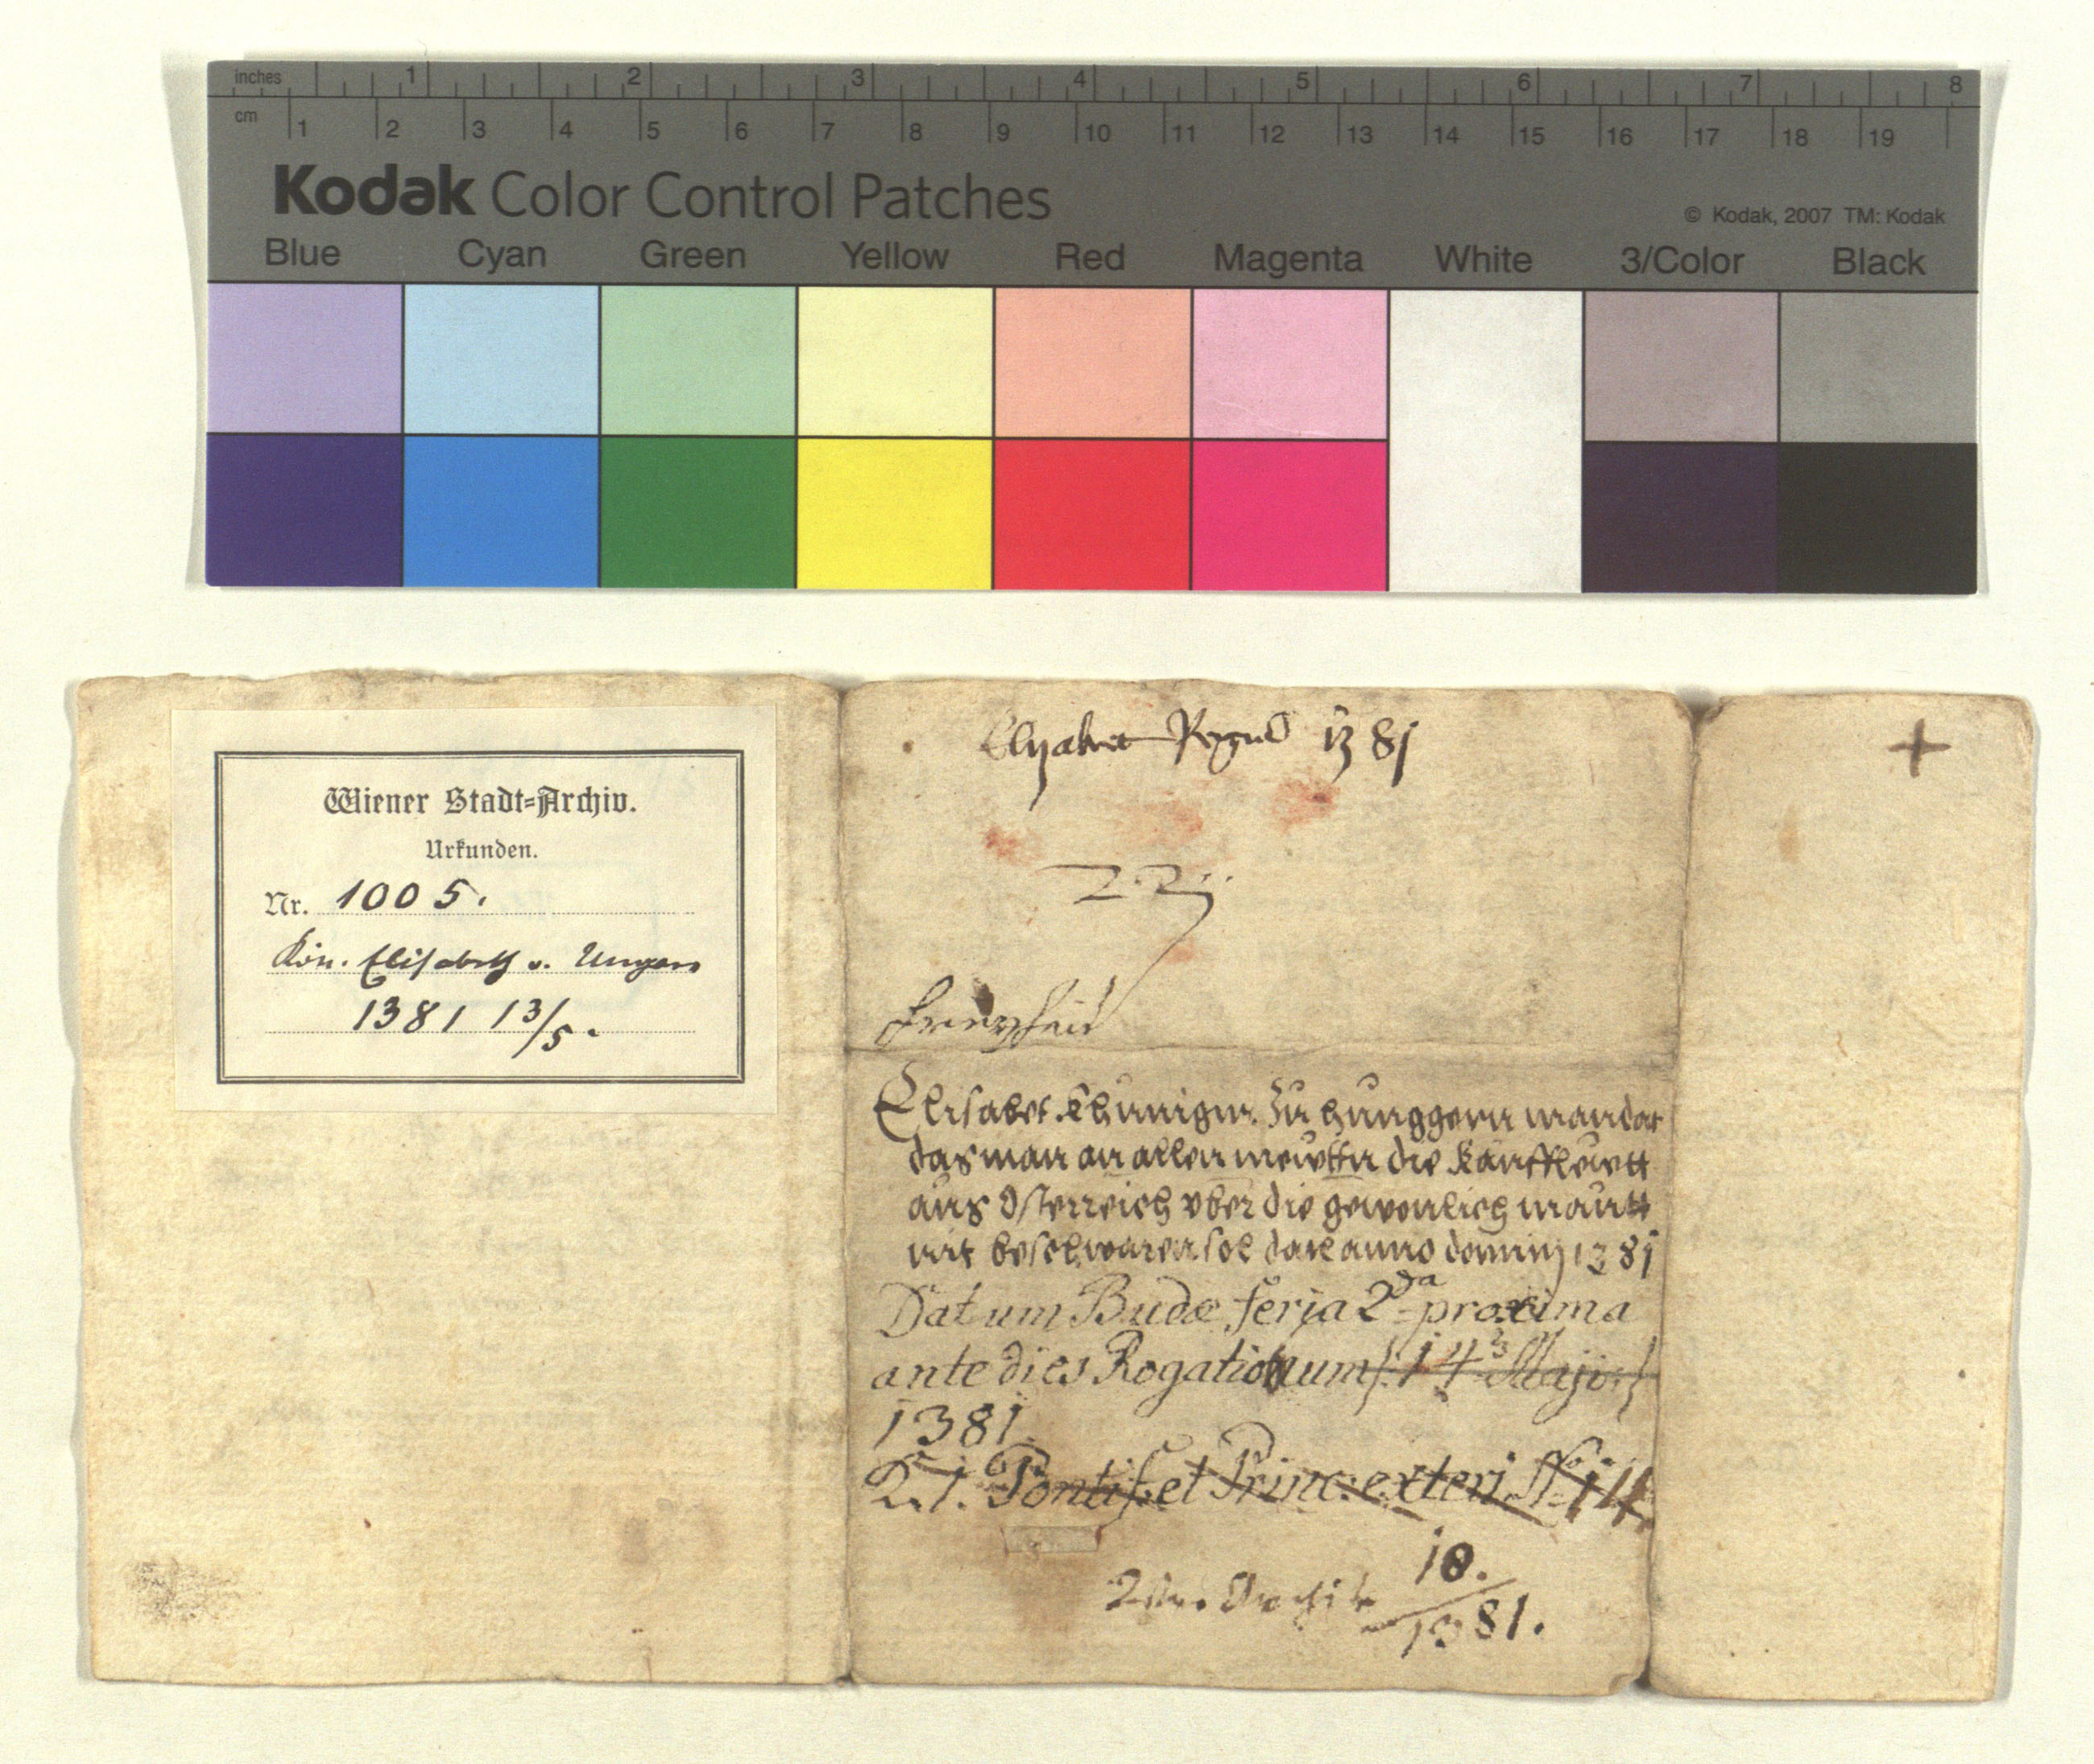 inches 1 2 3 4 5 6 7 8
cm 1 2 3 4 5 6 7 8 9 10 11 12 13 14 15 16 17 18 19
Kodak Color Control Patches
© Kodak, 2007 TM: Kodak
Blue Cyan Green Yellow Red Magenta White 3/Color Black
Wiener Stadt=Archiv.
Urkunden.
Nr. 1005.
Kön. Elisabeth v. Ungarn
1381 13/5.
Elyzabet 1381
+
Freyheid
Elisabet Khunigin zu hunggern mandat
das man an allen mewttn die kaufflewtt
aus Osterreich vber die gewonlich mautt
nit beschwaren sol dat anno domini 1381
Datum Budæ feria 2da proxima
ante dies Rogationum /: 14 Maji :/
1381
Pontif: et Princ: exteri No 14
10.
1381.